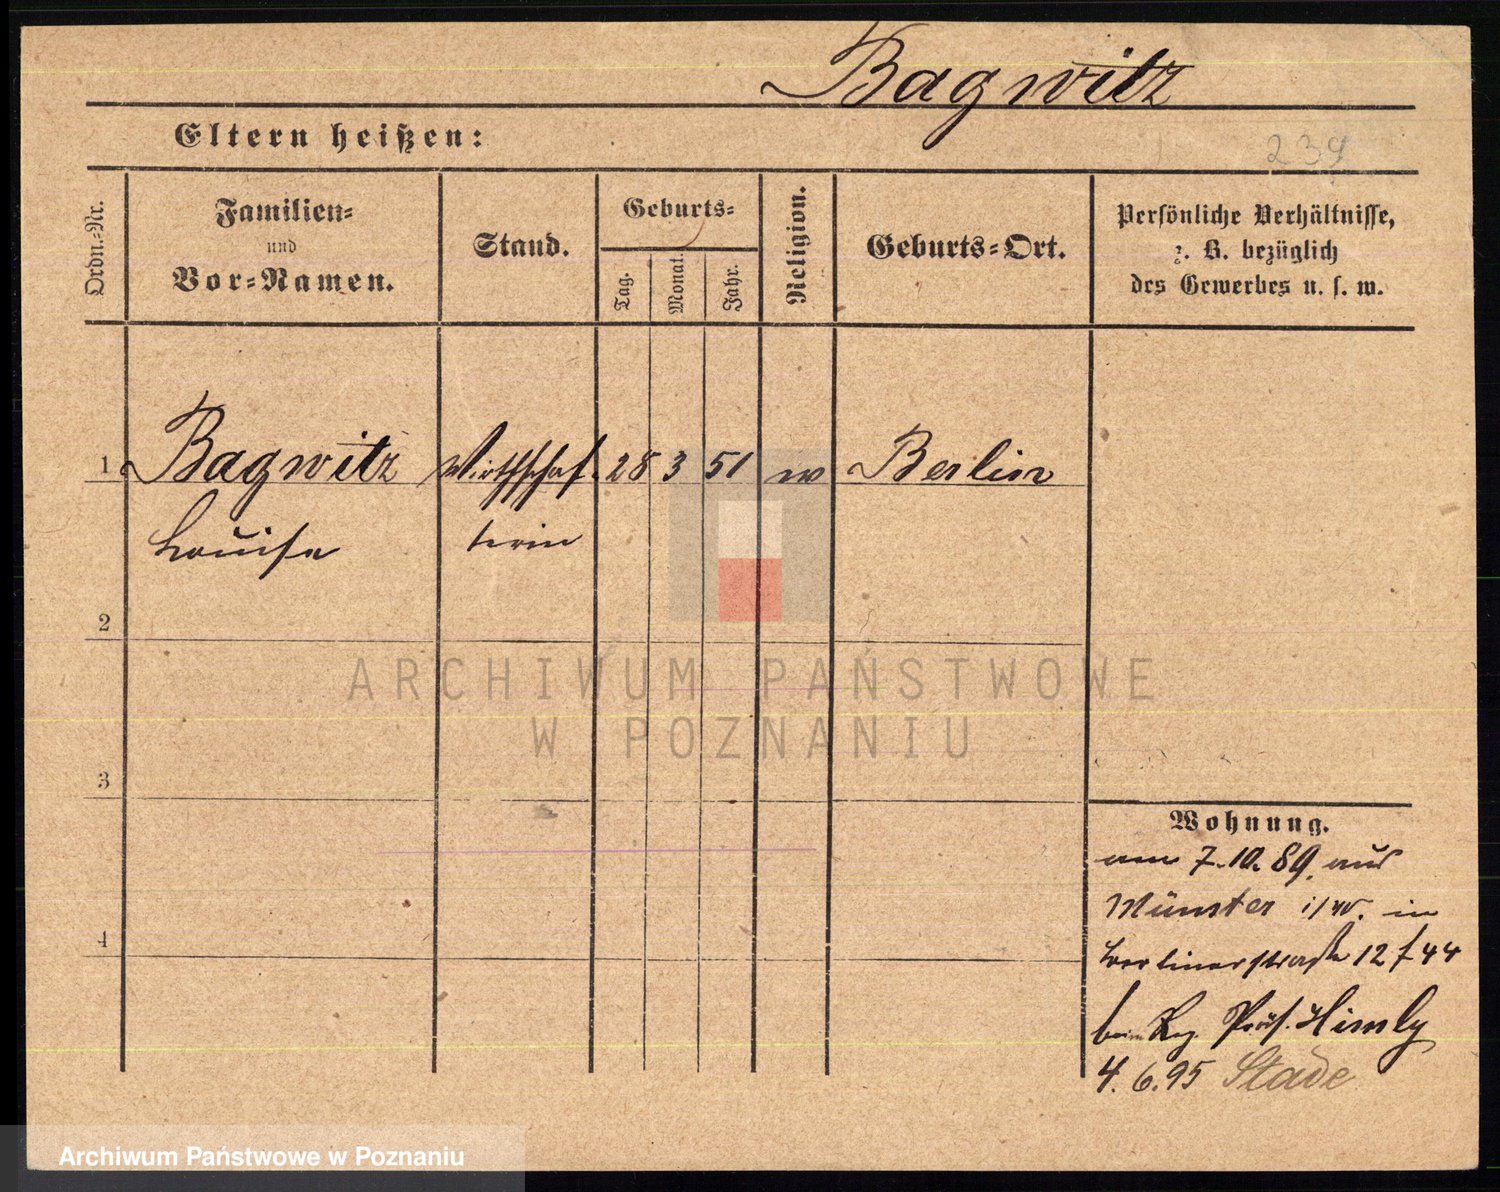 Bagwitz
Eltern heißen:
239
Ordn.-Nr.
Familien-
und
Vor-Namen.
Stand.
Geburts-
Tag.
Monat.
Jahr.
Religion.
Geburts-Ort.
Persönliche Verhältnisse,
z. B. bezüglich
des Gewerbes u. s. w.
1 Bagwitz Wirthschaf- 28 3 51 Berlin
Louise terin
2
3
4
ARCHIWUM PAŃSTWOWE
W POZNANIU
Wohnung.
am 7.10.89. aus
Münster i/W. in
Berlinerstraße 12 f 44
beim Reg. Präs. Himly
4.6.95 Stade
Archiwum Państwowe w Poznaniu